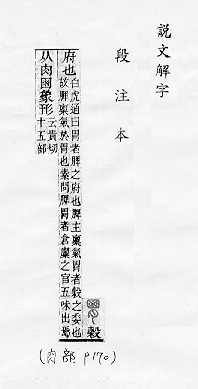 說文解字
段注本
穀
府也白虎通曰胃者脾之府也脾主稟氣胃者穀之委也
故脾稟氣於胃也素問脾胃者倉廩之官五味出焉
从肉𡇒象形云貴切
十五部
(肉部 P170)